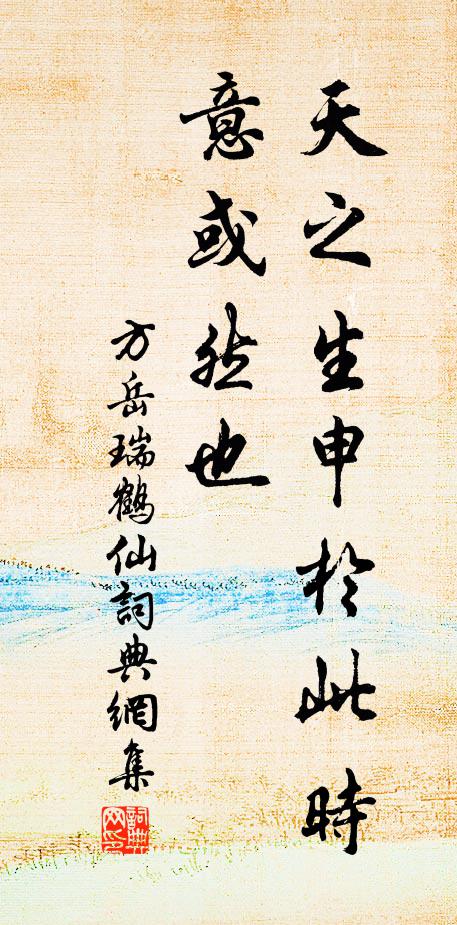 天之生申於此時
意或然也
方岳瑞鶴仙詞典網集
詞典網印